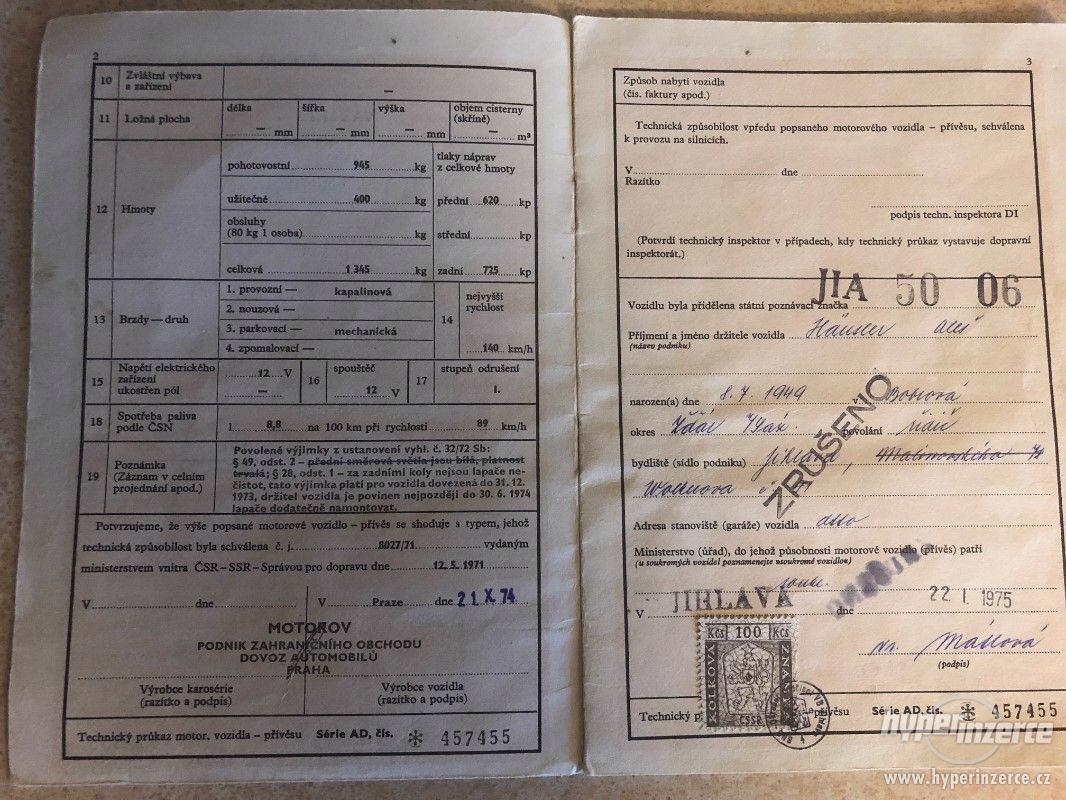 2
10 Zvláštní výbava a zařízení —
11 Ložná plocha délka — mm šířka — mm výška — mm objem cisterny (skříně) — m³
12 Hmoty
pohotovostní 945 kg
užitečné 400 kg
obsluhy (80 kg 1 osoba) kg
celková 1 345 kg
tlaky náprav z celkové hmoty
přední 620 kp
střední kp
zadní 725 kp
13 Brzdy—druh
1. provozní — kapalinová
2. nouzová —
3. parkovací — mechanická
4. zpomalovací —
14 nejvyšší rychlost
140 km/h
15 Napětí elektrického zařízení 12 V
ukostřen pól —
16 spouštěč 12 V
17 stupeň odrušení I.
18 Spotřeba paliva podle ČSN l 8,8 na 100 km při rychlosti 89 km/h
19 Poznámka (Záznam v celním projednání apod.)
Povolené výjimky z ustanovení vyhl. č. 32/72 Sb:
§ 49, odst. 2 – přední směrová světla jsou bílá, platnost
trvalá; § 28, odst. 1 – za zadními koly nejsou lapače ne-
čistot, tato výjimka platí pro vozidla dovezená do 31. 12.
1973, držitel vozidla je povinen nejpozději do 30. 6. 1974
lapače dodatečně namontovat.
Potvrzujeme, že výše popsané motorové vozidlo – přívěs se shoduje s typem, jehož
technická způsobilost byla schválena č. j. 8027/71 vydaným
ministerstvem vnitra ČSR–SSR–Správou pro dopravu dne 12. 5. 1971
V dne
V Praze dne 21. X. 74
MOTOKOV
PODNIK ZAHRANIČNÍHO OBCHODU
DOVOZ AUTOMOBILŮ
PRAHA
Výrobce karosérie
(razítko a podpis)
Výrobce vozidla
(razítko a podpis)
Technický průkaz motor. vozidla – přívěsu Série AD, čís. ✻ 457455
3
Způsob nabytí vozidla
(čís. faktury apod.)
Technická způsobilost vpředu popsaného motorového vozidla – přívěsu, schválena
k provozu na silnicích.
V dne
Razítko
podpis techn. inspektora DI
(Potvrdí technický inspektor v případech, kdy technický průkaz vystavuje dopravní
inspektorát.)
Vozidlu byla přidělena státní poznávací značka JIA 50 06
Příjmení a jméno držitele vozidla Aleš
(název podniku)
narozen(a) dne 8. 7. 1949
okres Žďár povolání řidič
bydliště (sídlo podniku) Jihlava,
Wolkrova
ZRUŠENO
Adresa stanoviště (garáže) vozidla
Ministerstvo (úřad), do jehož působnosti motorové vozidlo (přívěs) patří
(u soukromých vozidel poznamenejte »soukromé vozidlo«)
soukr.
V JIHLAVA dne 22 I. 1975
(podpis)
Kčs 100 Kčs
KOLKOVÁ
ZNÁMKA
ČSSR
Technický p přívěsu Série AD, čís. ✻ 457455
hyper
inzerce
www.hyperinzerce.cz